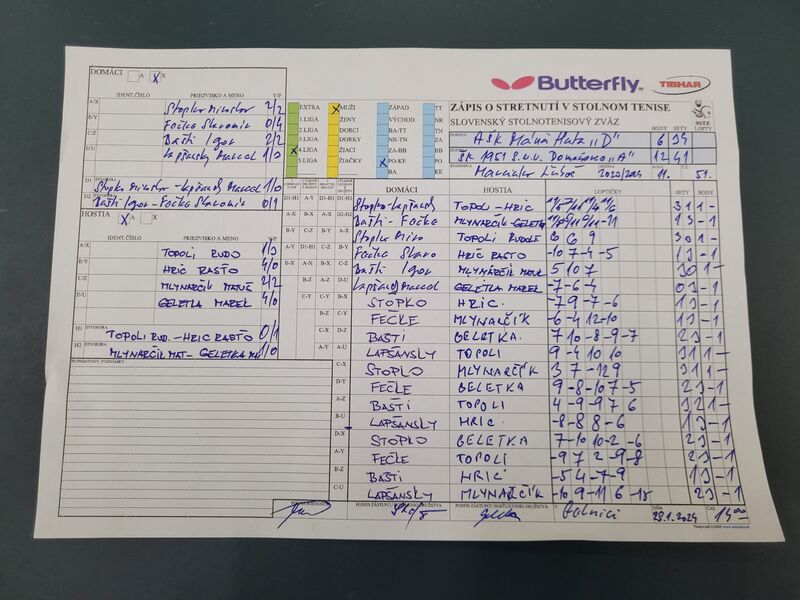 DOMÁCI A X X
IDENT.ČÍSLO PRIEZVISKO A MENO V/P
A/X Stopko Miroslav 2/2
B/Y Fečko Slavomír 0/4
C/Z Bašti Igor 2/2
D/U Lapšanský Marcel 1/3
D1 ŠTVORHRA Stopko Miroslav - Lapšanský Marcel 1/0
D2 ŠTVORHRA Bašti Igor - Fečko Slavomír 0/1
HOSTIA X A X
IDENT.ČÍSLO PRIEZVISKO A MENO V/P
A/X TOPOLI RUDO 1/3
B/Y HRIC RASŤO 4/0
C/Z MLYNARČÍK MATÚŠ 2/2
D/U GELETKA MAREK 4/0
H1 ŠTVORHRA TOPOLI RUD. - HRIC RASŤO 0/1
H2 ŠTVORHRA MLYNARČÍK MAT - GELETKA 1/0
PRIPOMIENKY, POZNÁMKY
EXTRA
1.LIGA
2.LIGA
3.LIGA
X 4.LIGA
5.LIGA
X MUŽI
ŽENY
DORCI
DORKY
ŽIACI
ŽIAČKY
ZÁPAD
VÝCHOD
BA-TT
TN-NR
ZA-BB
X PO-KE
BA
TT
NR
TN
ZA
BB
PO
KE
Butterfly
TIBHAR
ZÁPIS O STRETNUTÍ V STOLNOM TENISE
SLOVENSKÝ STOLNOTENISOVÝ ZVÄZ
SSTZ
DOMÁCI BODY SETY LOPTY
AŠK Malá Huta „D" 6 34
ŠK 1951 S.N.V. Domaňovce „A" 12 41
2023/2024 11. 51.
DOMÁCI HOSTIA LOPTIČKY
Stopko-Lapšanský TOPOLI - HRIC 3 1 1 -
Bašti - Fečko MLYNARČÍK-GELETKA 1 3 - 1
Stopko Miro TOPOLI RUDOLF 6 6 9 3 0 1 -
Fečko Slavo HRIC RASŤO -10 7 -4 -5 1 3 - 1
Bašti Igor MLYNARČÍK MATÚŠ 5 10 7 3 0 1 -
Lapšanský Marcel GELETKA MAREK -7 -6 -4 0 3 - 1
STOPKO HRIC -7 9 -7 -6 1 3 - 1
FEČKE MLYNARČÍK -6 -4 12 -10 1 3 - 1
BAŠTI GELETKA 7 10 -8 -9 -7 2 3 - 1
LAPŠANSKY TOPOLI 9 -4 10 10 3 1 1 -
STOPLO MLYNARČÍK 3 7 -12 9 3 1 1 -
FEČLE GELETKA 9 -8 -10 7 -5 2 3 - 1
BAŠTI TOPOLI 4 -9 -9 7 6 3 2 1 -
LAPŠANSKY HRIC -8 -8 8 -6 1 3 - 1
STOPKO GELETKA 7 -10 10 -2 -6 2 3 - 1
FEČLE TOPOLI -9 7 2 -9 -8 2 3 - 1
BAŠTI HRIC -5 4 -7 -9 1 3 - 1
LAPŠANSKY MLYNARČÍK -10 9 -11 6 -18 2 3 - 1
PODPIS ROZHODCU
PODPIS ZÁSTUPCU DOMÁCEHO DRUŽSTVA
PODPIS ZÁSTUPCU HOSŤUJÚCEHO DRUŽSTVA
V
DŇA 28.1.2024
ČAS 14:00